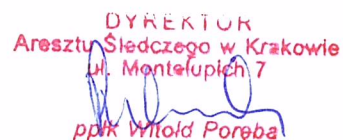 DYREKTOR
Aresztu Śledczego w Krakowie
ul. Montelupich 7
ppłk Witold Poręba